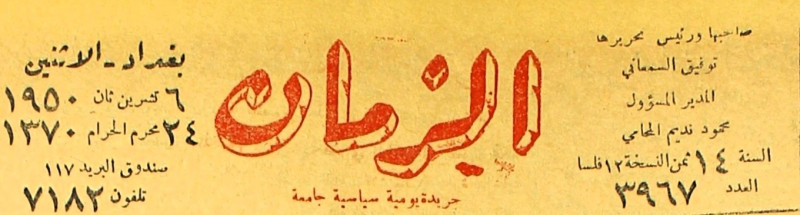 صاحبها ورئيس تحريرها
توفيق السمعاني
المدير المسؤول
محمود نديم المحامي
السنة ١٤ ثمن النسخة ١٢ فلسا
العدد ٣٩٦٧
الزمان
جريدة يومية سياسية جامعة
بغداد - الاثنين
٦ تشرين ثان ١٩٥٠
٢٤ محرم الحرام ١٣٧٠
صندوق البريد ١١٧
تلفون ٧١٨٢